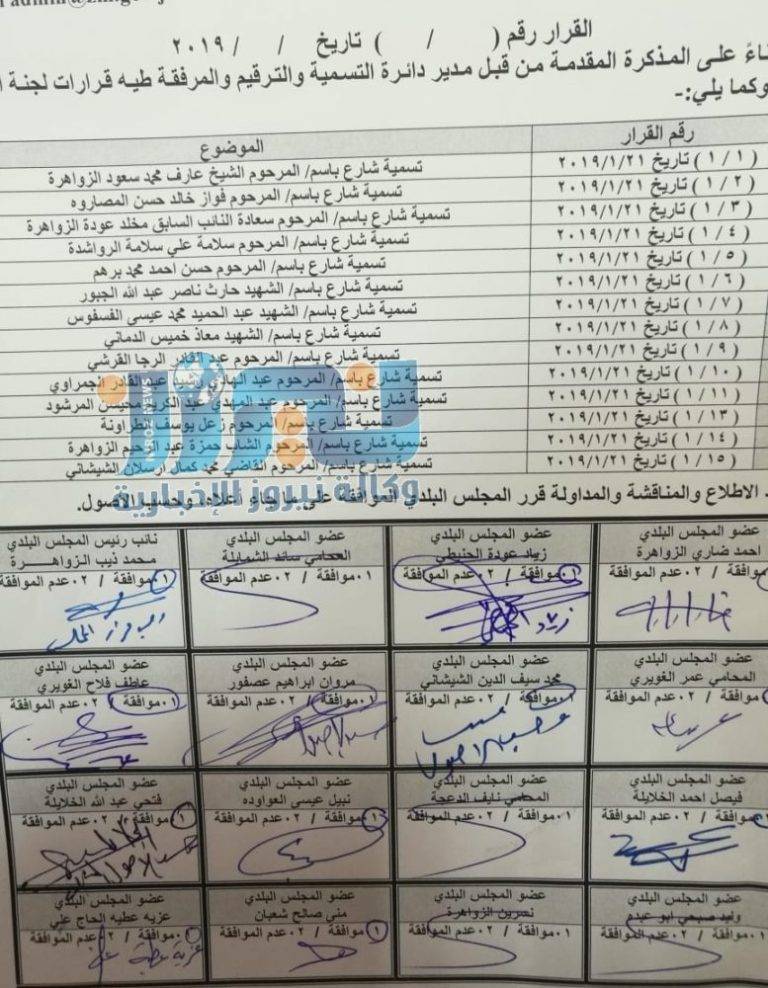 القرار رقم ( / ) تاريخ / / ٢٠١٩
على المذكرة المقدمة من قبل مدير دائرة التسمية والترقيم والمرفقة طيه قرارات لجنة
وكما يلي:-
رقم القرار الموضوع
( ١ / ١ ) تاريخ ٢٠١٩/١/٢١ تسمية شارع باسم/ المرحوم الشيخ عارف محمد سعود الزواهرة
( ١ / ٢ ) تاريخ ٢٠١٩/١/٢١ تسمية شارع باسم/ المرحوم فواز خالد حسن المصاروه
( ١ / ٣ ) تاريخ ٢٠١٩/١/٢١ تسمية شارع باسم/ المرحوم سعادة النائب السابق مخلد عودة الزواهرة
( ١ / ٤ ) تاريخ ٢٠١٩/١/٢١ تسمية شارع باسم/ المرحوم سلامة علي سلامة الرواشدة
( ١ / ٥ ) تاريخ ٢٠١٩/١/٢١ تسمية شارع باسم/ المرحوم حسن احمد محمد برهم
( ١ / ٦ ) تاريخ ٢٠١٩/١/٢١ تسمية شارع باسم/ الشهيد حارث ناصر عبد الله الجبور
( ١ / ٧ ) تاريخ ٢٠١٩/١/٢١ تسمية شارع باسم/ الشهيد عبد الحميد محمد عيسى الفسفوس
( ١ / ٨ ) تاريخ ٢٠١٩/١/٢١ تسمية شارع باسم/ الشهيد معاذ خميس الدماني
( ١ / ٩ ) تاريخ ٢٠١٩/١/٢١ تسمية شارع باسم/ المرحوم عبد القادر الرجا القرشي
( ١ / ١٠ ) تاريخ ٢٠١٩/١/٢١ تسمية شارع باسم/ المرحوم عبد الهادي رشيد عبد القادر الجمراوي
( ١ / ١١ ) تاريخ ٢٠١٩/١/٢١ تسمية شارع باسم/ المرحوم عبد المهدي عبد الكريم محيسن المرشود
( ١ / ١٣ ) تاريخ ٢٠١٩/١/٢١ تسمية شارع باسم/ المرحوم زعل يوسف الطراونة
( ١ / ١٤ ) تاريخ ٢٠١٩/١/٢١ تسمية شارع باسم/ المرحوم الشاب حمزة عبد الرحيم الزواهرة
( ١ / ١٥ ) تاريخ ٢٠١٩/١/٢١ تسمية شارع باسم/ المرحوم القاضي محمد كمال ارسلان الشيشاني
نيروز
وكالة نيروز الإخبارية
الاطلاع والمناقشة والمداولة قرر المجلس البلدي الموافقة على ما جاء أعلاه وحسب الاصول.
عضو المجلس البلدي عضو المجلس البلدي عضو المجلس البلدي نائب رئيس المجلس البلدي
احمد ضاري الزواهرة زياد عودة الحنيطي المحامي سائد الشمايلة محمد ذيب الزواهرة
٠١موافقة / ٠٢ عدم الموافقة ٠١موافقة / ٠٢ عدم الموافقة ٠١موافقة / ٠٢ عدم الموافقة
عضو المجلس البلدي عضو المجلس البلدي عضو المجلس البلدي عضو المجلس البلدي
المحامي عمر الغويري محمد سيف الدين الشيشاني مروان ابراهيم عصفور عاطف فلاح الغويري
موافقة / ٠٢ عدم الموافقة ٠١موافقة / ٠٢ عدم الموافقة ٠١موافقة / ٠٢ عدم الموافقة ٠١موافقة / ٠٢ عدم الموافقة
عضو المجلس البلدي عضو المجلس البلدي عضو المجلس البلدي عضو المجلس البلدي
فيصل احمد الخلايلة المحامي نايف الدعجة نبيل عيسى العواوده فتحي عبد الله الخلايلة
موافقة / ٠٢ عدم الموافقة ٠١موافقة / ٠٢ عدم الموافقة ٠١موافقة / ٠٢ عدم الموافقة ٠١موافقة / ٠٢ عدم الموافقة
عضو المجلس البلدي عضو المجلس البلدي عضو المجلس البلدي عضو المجلس البلدي
وليد صبحي ابو عبدم نسرين الزواهرة منى صالح شعبان عزيه عطيه الحاج علي
٠١موافقة / ٠٢ عدم الموافقة ٠١موافقة / ٠٢ عدم الموافقة ٠١موافقة / ٠٢ عدم الموافقة ٠١موافقة / ٠٢ عدم الموافقة